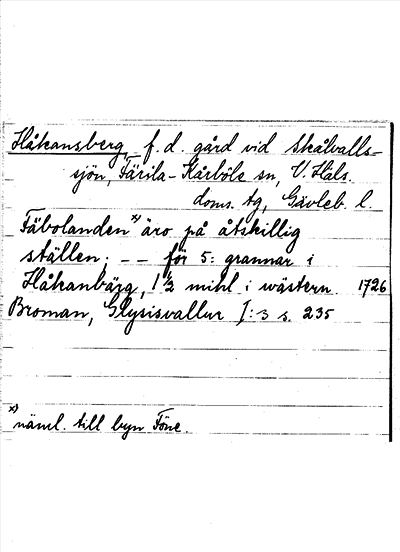 Håkansberg, f.d. gård vid Skålvalls-
sjön, Färila-Kårböle sn, V. Häls.
doms. tg, Gävleb. l.
Fäbolanden x) äro på åtskillig
ställen. – – för 5: grannar i
Håkanbärg, 1 1/2 mihl i wästern. 1726
Broman, Glysisvallur I:3 s. 235
x) näml. till byn Föne.